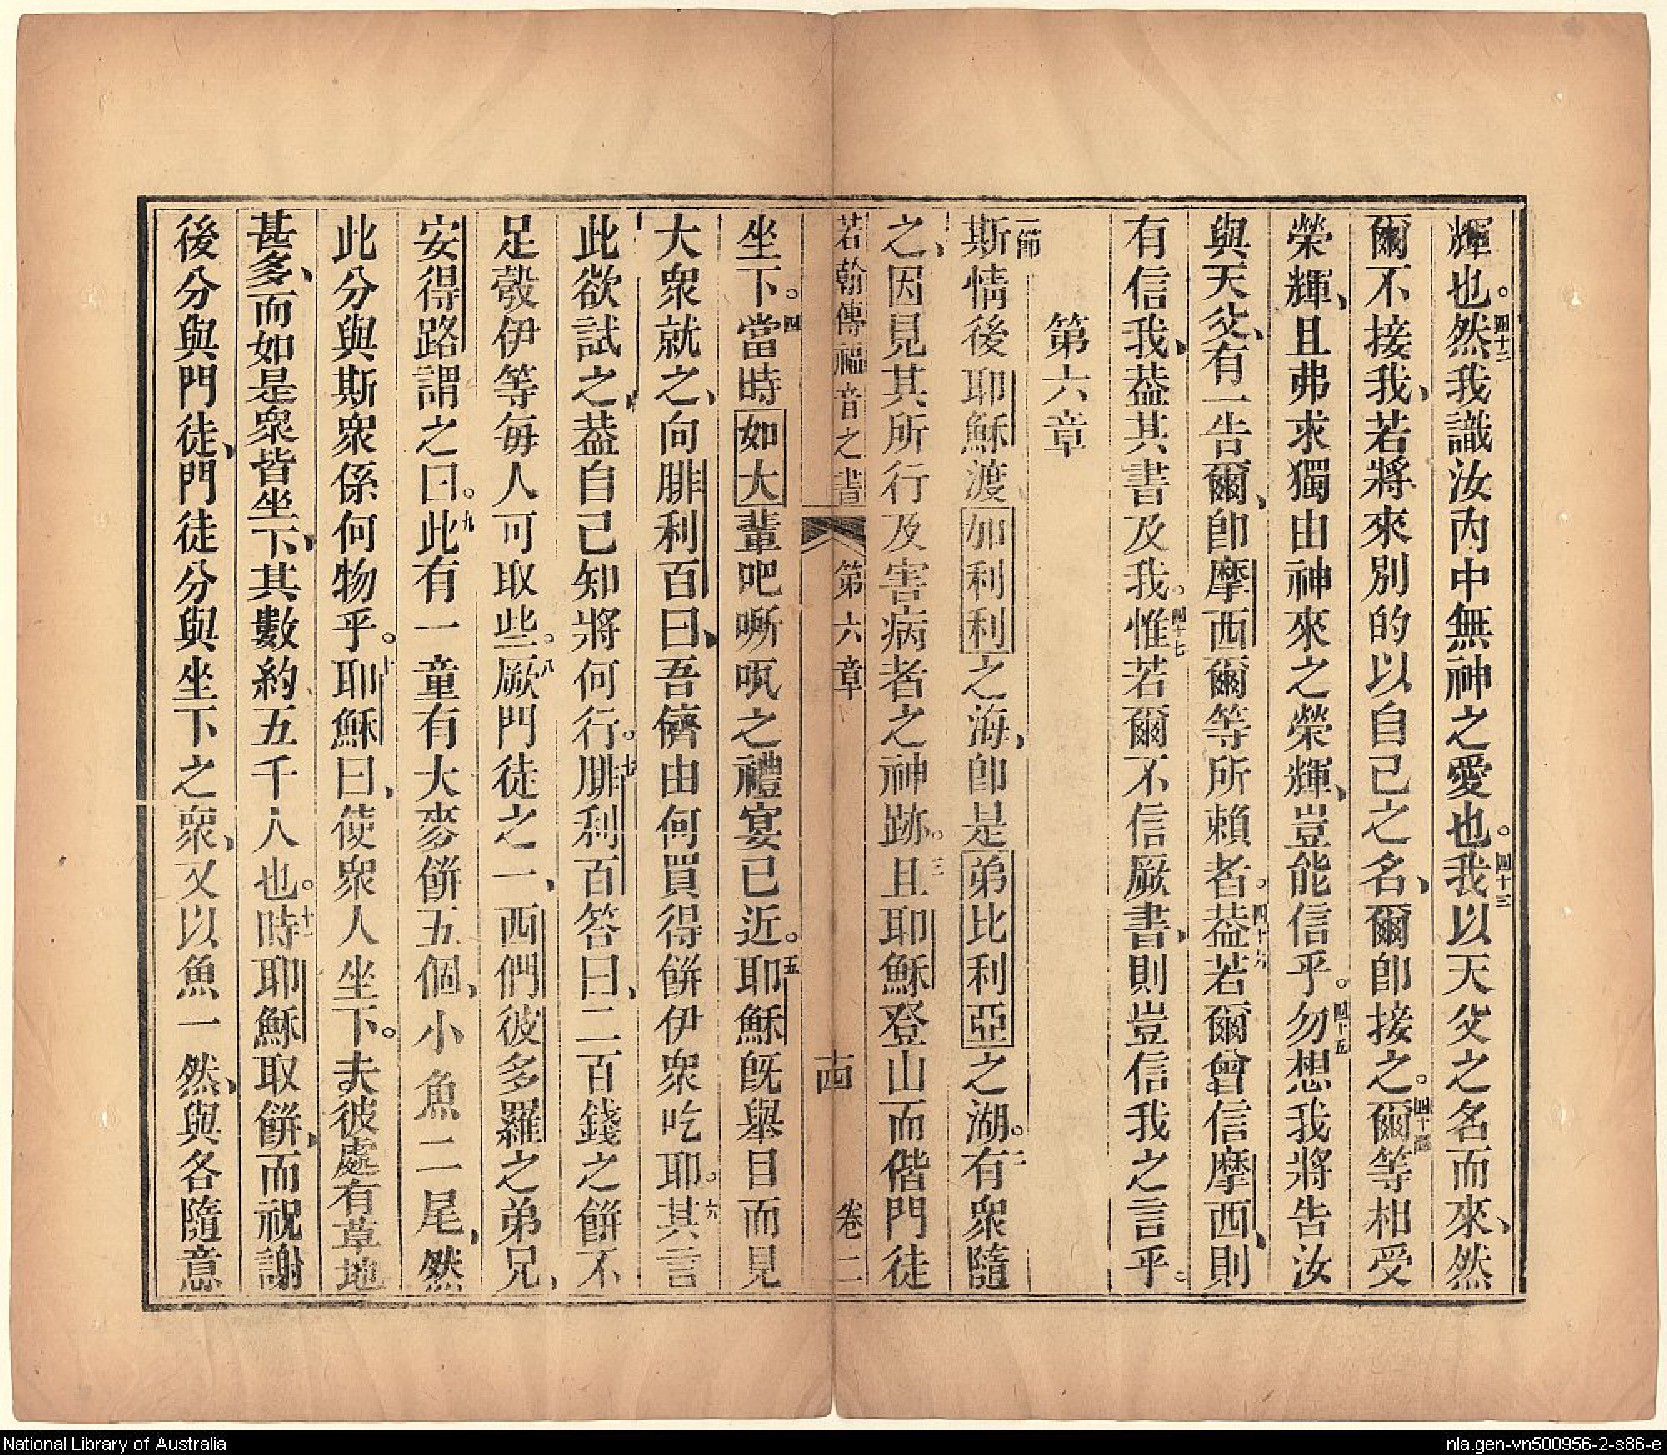 輝也。四十二然我識汝內中無神之愛也。四十三我以天父之名而來、然
爾不接我、若將來別的以自己之名、爾卽接之。四十四爾等相受
榮輝、且弗求獨由神來之榮輝、豈能信乎。四十五勿想我將告汝
與天父、有一告爾、卽摩西爾等所賴者。四十六葢若爾曾信摩西、則
有信我、葢其書及我。四十七惟若爾不信厥書、則豈信我之言乎。
第六章
一節斯情後耶穌渡加利利之海、卽是弟比利亞之湖。二有衆隨
之、因見其所行及害病者之神跡。三且耶穌登山而偕門徒
若翰傳福音之書 第六章 卷二
坐下。四當時如大輩吧嘶咓之禮宴已近。五耶穌旣舉目而見
大衆就之、向腓利百曰、吾儕由何買得餅伊衆吃耶。六其言
此欲試之、葢自己知將何行。七腓利百答曰、二百錢之餅不
足彀伊等每人可取些。八厥門徒之一、西們彼多羅之弟兄、
安得路謂之曰。九此有一童有大麥餅五個、小魚二尾、然
此分與斯衆係何物乎。十耶穌曰、使衆人坐下。夫彼處有草地
甚多、而如是衆皆坐下、其數約五千人也。十一時耶穌取餅、而祝謝
後分與門徒、門徒分與坐下之衆、又以魚一然、與各隨意